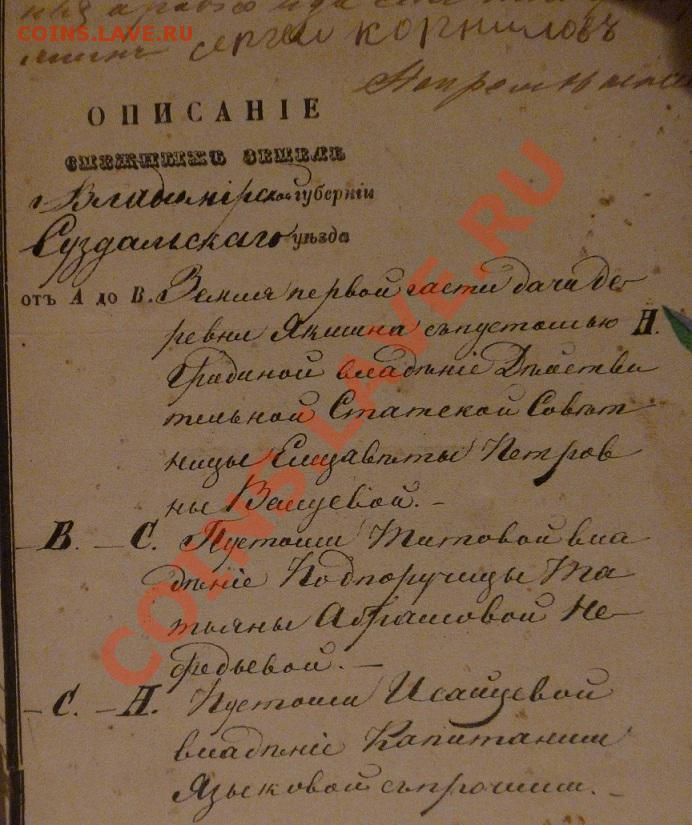 COINS.LAVE.RU
Сергей Корнилов
ОПИСАНІЕ
СМЕЖНЫХЪ ЗЕМЕЛЬ
Владимірской губерніи
Суздальскаго уѣзда
отъ А до В. Земля первой части дачи де-
ревни Якшина съпустошью А.
Градиной владѣніе Дѣйстви
тельной Статской Совѣт
ницы Елизаветы Петров
ны Валуевой. -
В. - С. Пустоши Титовой вла
дѣніе Подпоручицы Та
тьяны Абрамовой Не-
федьевой. -
- С. - А. Пустоши Исайцевой
владѣніе Капитанши
Языковой съпрочими. -
COINS.LAVE.RU